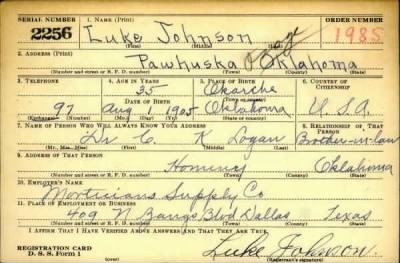 SERIAL NUMBER 1. NAME (Print) ORDER NUMBER
2256 Luke Johnson 1985
(First) (Middle) (Last)
2. ADDRESS (Print)
Pawhuska Osage Oklahoma
(Number and street or R. F. D. number) (Town) (County) (State)
3. TELEPHONE 4. AGE IN YEARS 5. PLACE OF BIRTH 6. COUNTRY OF CITIZENSHIP
35 Okarche
DATE OF BIRTH (Town or county)
97 Aug 1 1905 Oklahoma U.S.A.
(Exchange) (Number) (Mo.) (Day) (Yr.) (State or country)
7. NAME OF PERSON WHO WILL ALWAYS KNOW YOUR ADDRESS 8. RELATIONSHIP OF THAT PERSON
Dr C K Logan Brother-in-law
(Mr., Mrs., Miss) (First) (Middle) (Last)
9. ADDRESS OF THAT PERSON
Hominy Oklahoma
(Number and street or R. F. D. number) (Town) (County) (State)
10. EMPLOYER'S NAME
Morticians Supply Co
11. PLACE OF EMPLOYMENT OR BUSINESS
409 N Bangs Blvd Dallas Texas
(Number and street or R. F. D. number) (Town) (County) (State)
I AFFIRM THAT I HAVE VERIFIED ABOVE ANSWERS AND THAT THEY ARE TRUE.
REGISTRATION CARD
D. S. S. Form 1 Luke Johnson.
(over) (Registrant's signature)